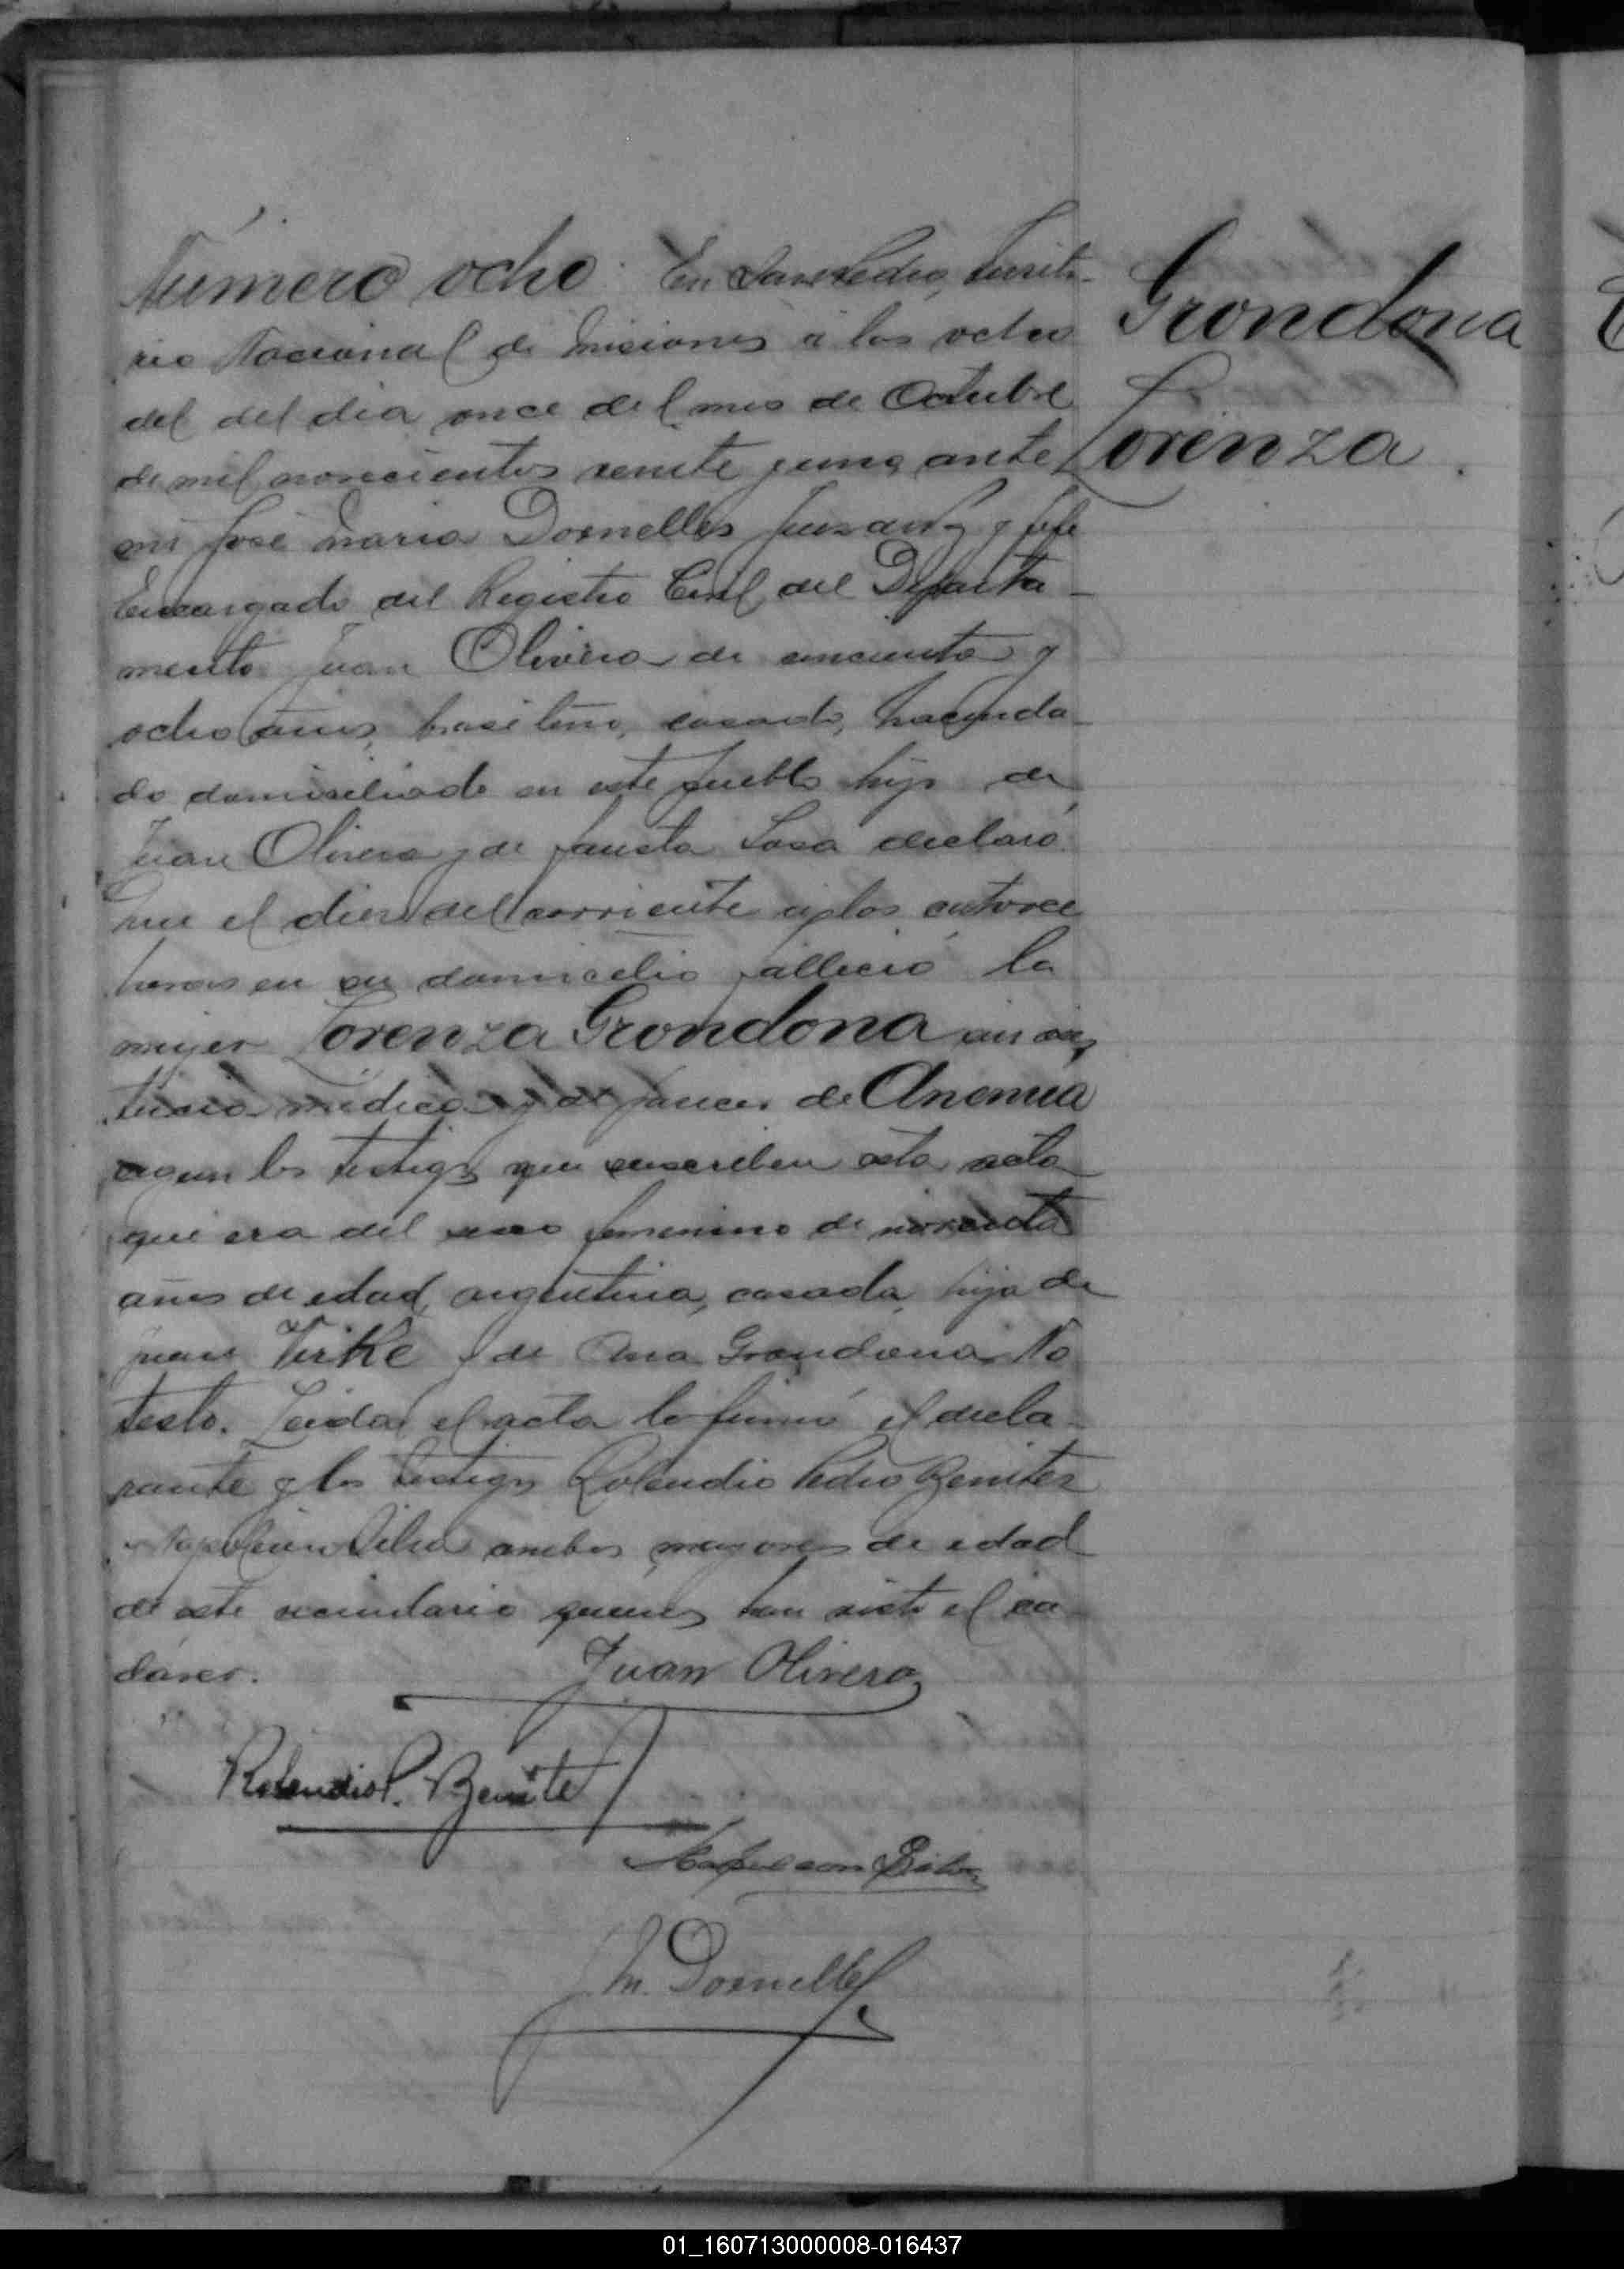 Grondona
Lorenza.
Número ocho. En San Pedro, Territo-
rio Nacional de Misiones á las ocho
del del dia once del mes de Octubre
de mil novecientos veinte y uno, ante
mi José Maria Dornelles Juez de Paz y Jefe
Encargado del Registro Civil del Departa-
mento Juan Olivera de cincuenta y
ocho años, brasilero, casado, hacenda-
do domiciliado en este pueblo hijo de
Juan Olivera y de Fausta Sosa declaró:
Que el diez del corriente á las catorce
horas en su domicilio falleció la
mujer Lorenza Grondona sin asis
tencia médica de Anemia
segun los testigos que suscriben esta acta
que era del sexo femenino de noventa
años de edad, argentina, casada, hija de
Juan Virke y de Ana Grondona. No
testo. Leida el acta la firmó el decla-
rante y los testigos Rolendio Pedro Benitez
y Napoleon Silva ambos mayores de edad
de este vecindario quienes han visto el ca-
dáver.
Juan Olivera
Rolendio P. Benite
Napoleon Silva
M. Dornelles
01_160713000008-016437